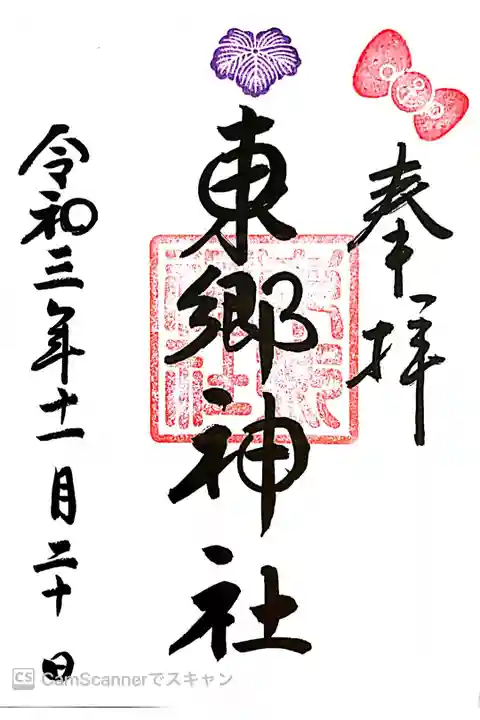 奉拝
東郷神社
令和三年十一月二十日
CS CamScannerでスキャン